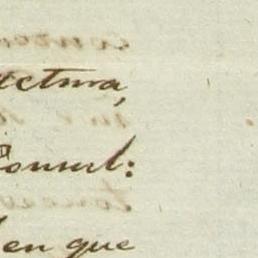 ectura,
Consul:
en que